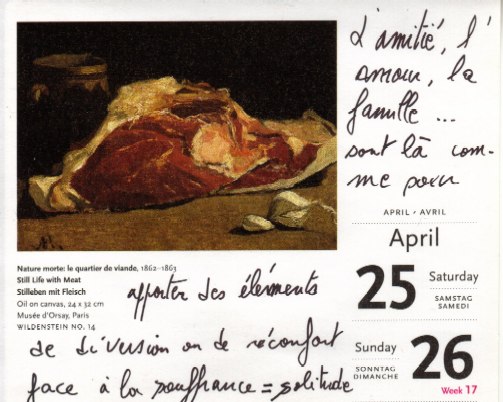 L'amitié, l'
amour, la
famille ...
sont là com-
me pour
APRIL • AVRIL
April
25 Saturday
SAMSTAG
SAMEDI
Sunday 26
SONNTAG
DIMANCHE
Week 17
Nature morte: le quartier de viande, 1862–1863
Still Life with Meat
Stilleben mit Fleisch
Oil on canvas, 24 x 32 cm
Musée d'Orsay, Paris
WILDENSTEIN NO. 14
apporter des éléments
de diversion ou de réconfort
face à la souffrance = solitude